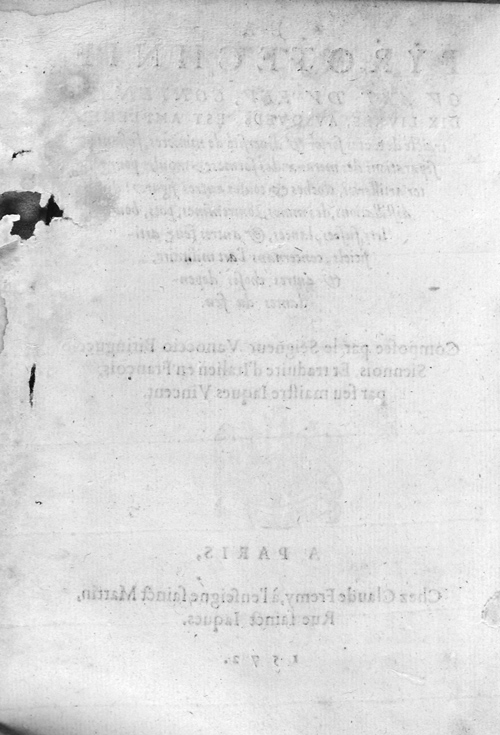 PYROTECHNIE
OV ART DV FEV, CONTENANT
DIX LIVRES, AVSQVELS EST AMPLEMENT
traicté de toutes sortes & diuersité de minieres, fusions &
separation des metaux: des formes & moules pour
getter artilleries, cloches & toutes autres figures:
distillations, des mines, contremines, pots, boul-
lets, fusees, lances, & autres feuz arti-
ficiels, concernans l'art militaire,
& autres choses depen-
dantes du feu.
Composée par le Seigneur Vanoccio Biringuccio
Siennois. Et traduite d'Italien en François,
par feu maistre Iaques Vincent.
A PARIS,
Chez Claude Fremy, à l'enseigne sainct Martin,
Rue sainct Iaques.
1572.